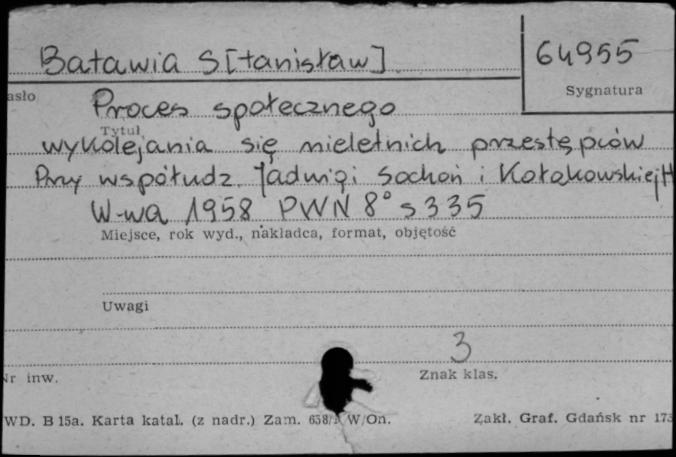 Batawia S[tanisław] 64955
asło Sygnatura
Proces społecznego
Tytuł
wykolejania się nieletnich przestępców
Przy współudz. Jadwigi Sochoń i Kołakowskiej H
W-wa 1958 PWN 8° s 335
Miejsce, rok wyd., nakładca, format, objętość
Uwagi
3
Nr inw. Znak klas.
WD. B 15a. Karta katal. (z nadr.) Zam. W/On. Zakł. Graf. Gdańsk nr 173